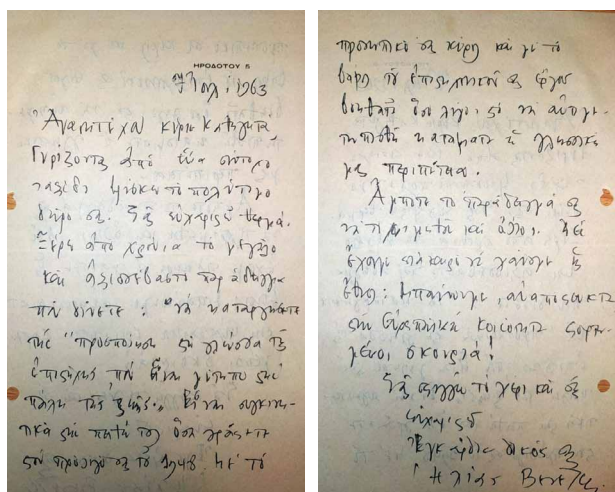 ΗΡΟΔΟΤΟΥ 5
Ἰουλ. 1963
Ἀγαπητέ μου κύριε καθηγητά
Γυρίζοντας ἀπό ἕνα σύντομο
ταξίδι βρῆκα τό πολύτιμο
δῶρο σας. Σᾶς εὐχαριστῶ θερμά.
Ξέρω ἀπό χρόνια τό μεγάλο
καί ἀξιοσέβαστο παράδειγμα
πού δίνετε: νά καταργήσετε
τῆς "προσποίηση στή γλῶσσα τῆς
ἐπιστήμης πού εἶναι μέτωπο στήν
πάλη τῆς ζωῆς". Εἶναι συγκινη-
τικά στήν πατή του ὅσα γράφετε
στόν πρόλογό σας τό 1948. Μέ τό
προσωπικό σας κῦρος καί μέ τό
βάρος τοῦ ἐπιστημονικοῦ σας ἔργου
βοηθᾶτε ὅσο λίγοι, γιά νά
κατάματα τή γλωσσική
μας περιπέτεια.
Ἄμποτε τό παράδειγμά σας
νά τό μιμηθοῦν καί ἄλλοι.
ἔχουμε καιρό νά χάνουμε
ἔθνος: Μπαίνουμε, ἀναπόφευκτα
στήν Εὐρωπαϊκή Κοινότητα
σκουριά!
Σᾶς σφίγγω τό χέρι καί σᾶς
εὐχαριστῶ
Ἐγκάρδια δικός σας
Ἠλίας Βενέζης